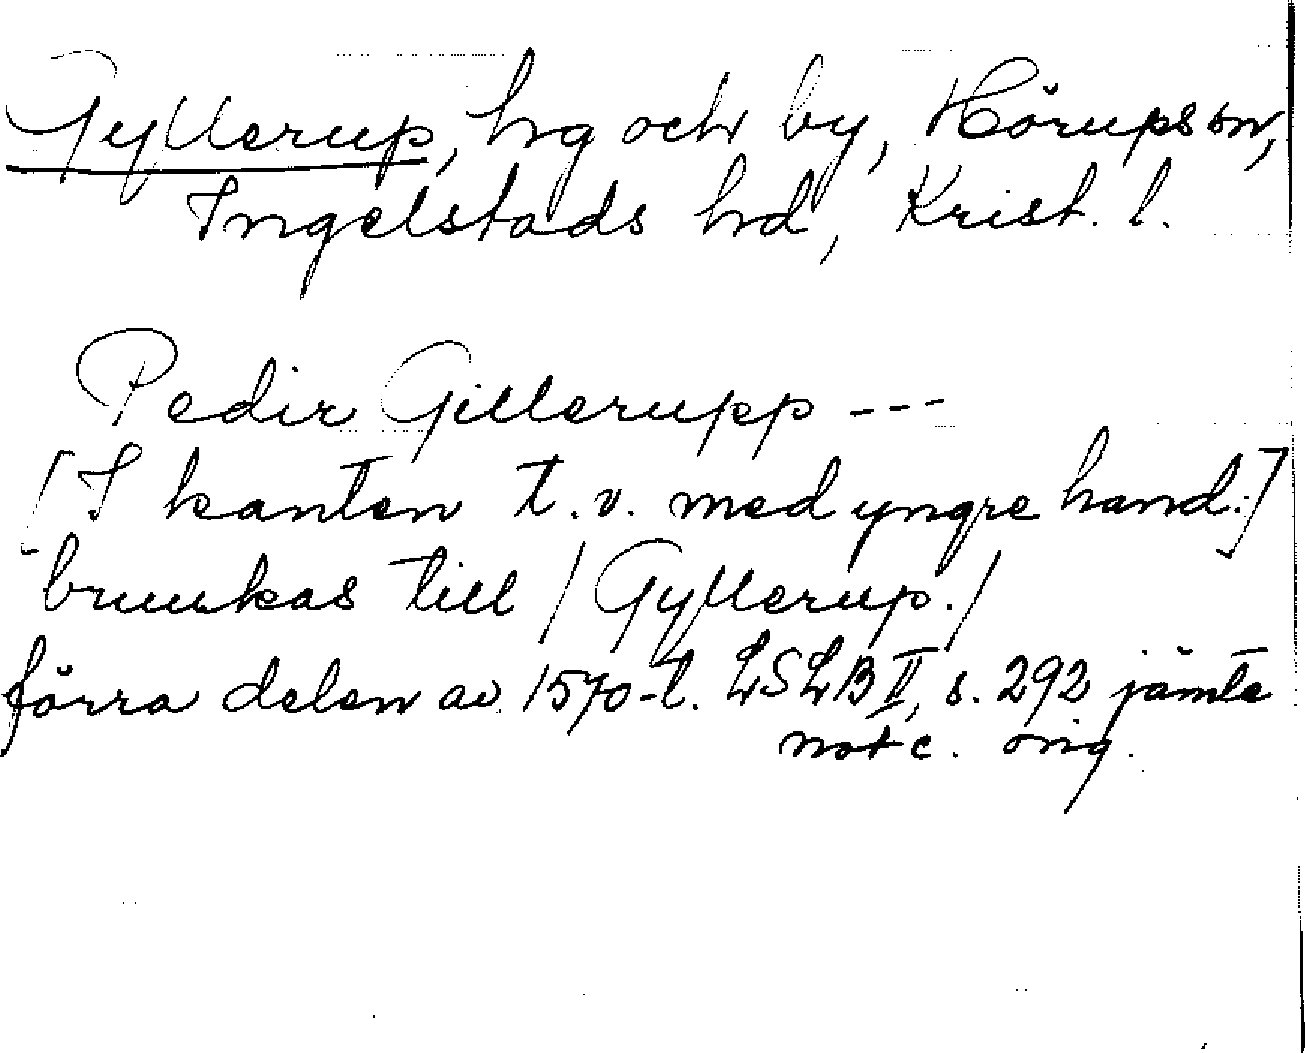 Gyllerup, hg och by, Hörups sn,
Ingelstads hd, Krist. l.
Pedir Gillerupp ---
[I kanten t.v. med yngre hand:]
bruukas till / Gyllerup./
förra delen av 1570-t. LSLB II, s. 292 jämte
not c. orig.